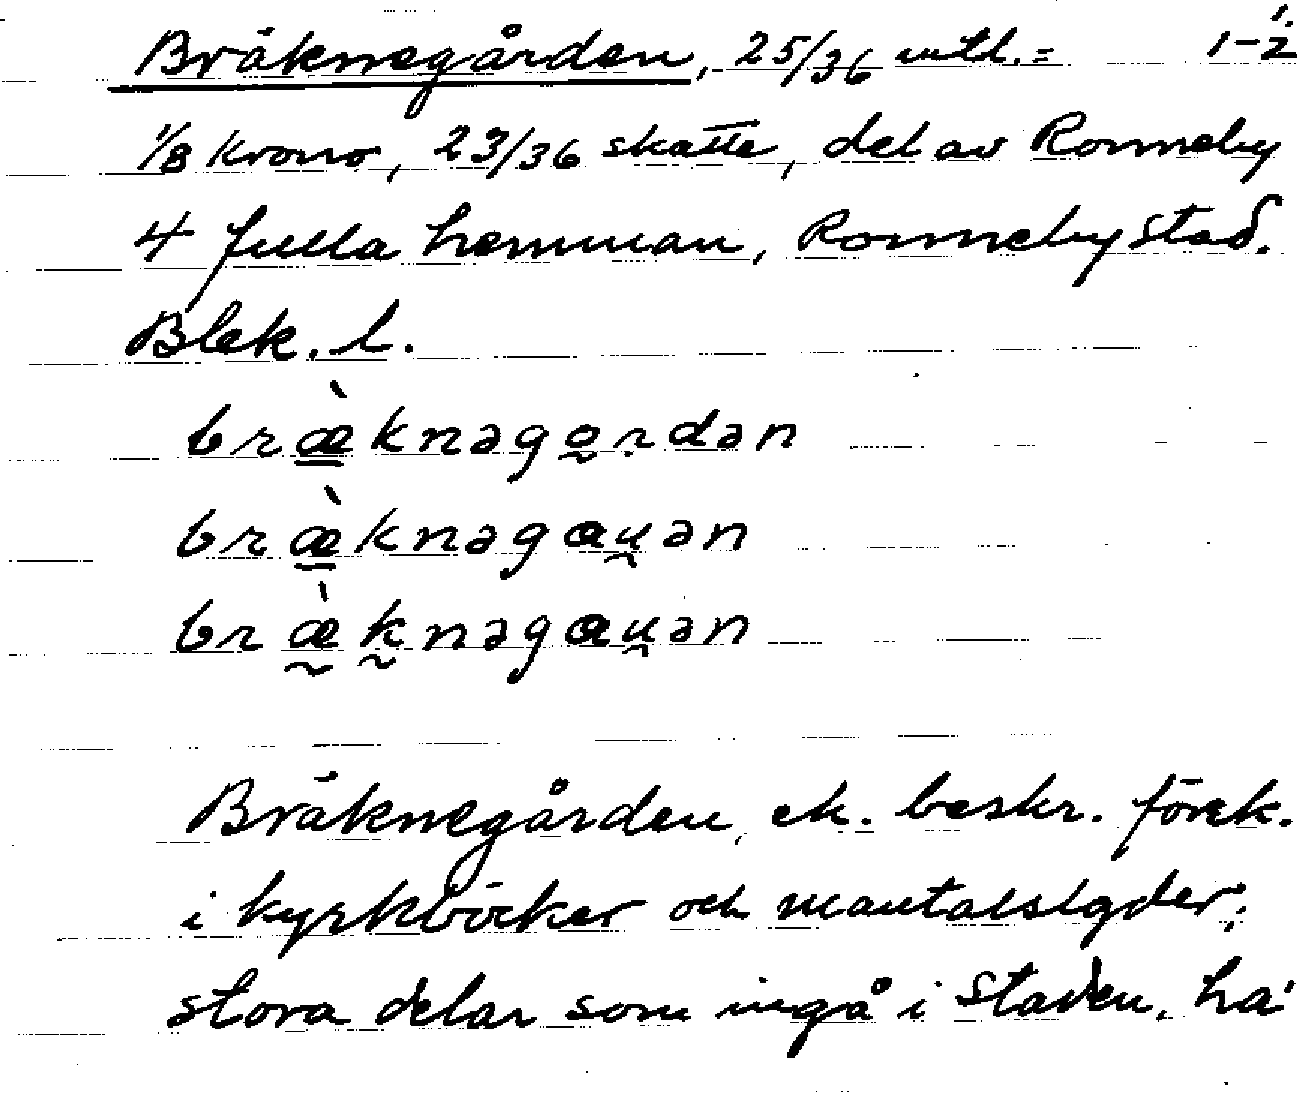 Bräknegården, 25/36 mtl. = 1-2
1/8 krono, 23/36 skatte, del av Ronneby
4 fulla hemman, Ronneby stad.
Blek. l.
bræ̀knəgordən
bræ̀knəgauən
bræ̀knəgauən
Bräknegården, ek. beskr. förek.
i kyrkböcker och mantalslgder;
stora delar som ingå i staden, ha